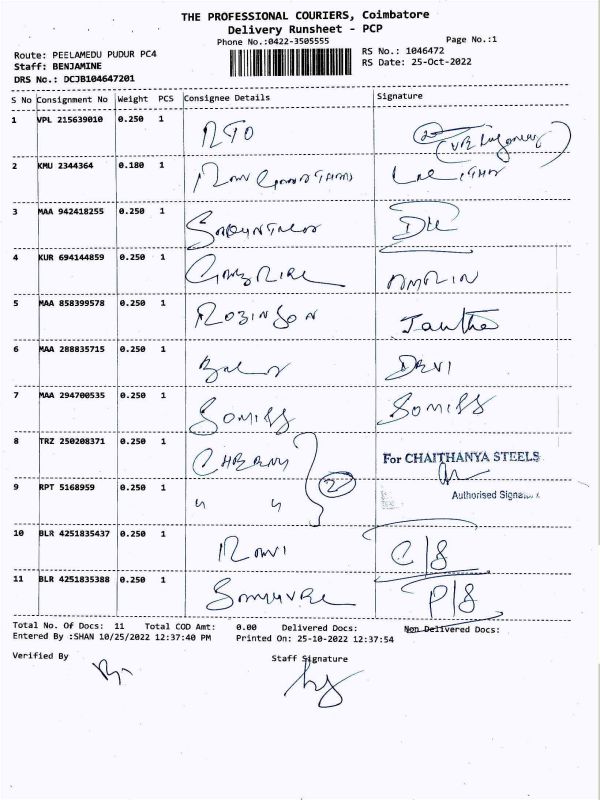 THE PROFESSIONAL COURIERS, Coimbatore
Delivery Runsheet - PCP
Phone No.:0422-3505555
Page No.:1
Route: PEELAMEDU PUDUR PC4
RS No.: 1046472
Staff: BENJAMINE
RS Date: 25-Oct-2022
DRS No.: DCJB104647201
S No Consignment No Weight PCS Consignee Details Signature
1 VPL 215639010 0.250 1 RTO
2 KMU 2344364 0.180 1
3 MAA 942418255 0.250 1
4 KUR 694144859 0.250 1 AMALIN
5 MAA 858399578 0.250 1 ROBINSON
6 MAA 288835715 0.250 1 DEVI
7 MAA 294700535 0.250 1
8 TRZ 250208371 0.250 1 CHERAN For CHAITHANYA STEELS
2
9 RPT 5168959 0.250 1 " " Authorised Signatory
10 BLR 4251835437 0.250 1 RAVI C/S
11 BLR 4251835388 0.250 1 P/S
Total No. Of Docs: 11 Total COD Amt: 0.00 Delivered Docs: Non Delivered Docs:
Entered By :SHAN 10/25/2022 12:37:40 PM Printed On: 25-10-2022 12:37:54
Verified By Staff Signature